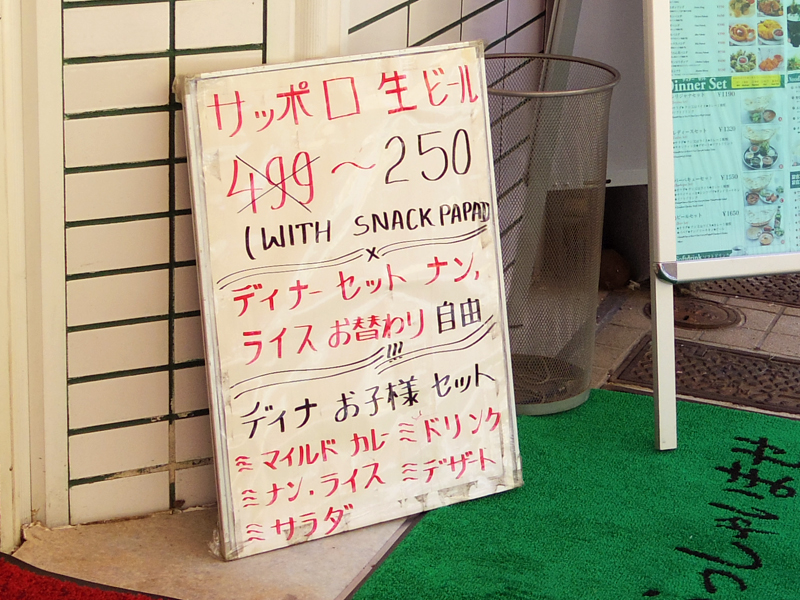 サッポロ 生ビール
499～250
(WITH SNACK PAPAD
x
ディナーセット ナン,
ライス お替わり 自由
!!!
ディナ お子様 セット
ミ マイルド カレー ミ ドリンク
ミ ナン・ライス ミ デザート
ミ サラダ
Dinner Set
￥1190
￥1320
￥1350
￥1650
っしゃいませ